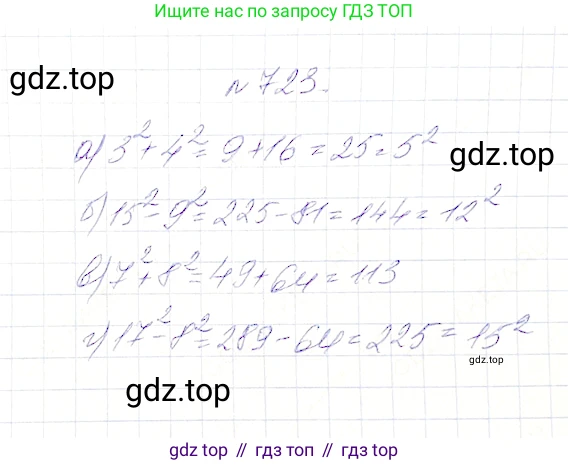 Ищите нас по запросу ГДЗ ТОП
gdz.top
№ 723.
а) 3² + 4² = 9 + 16 = 25 = 5²
gdz.top
б) 15² - 9² = 225 - 81 = 144 = 12²
в) 7² + 8² = 49 + 64 = 113
г) 17² - 8² = 289 - 64 = 225 = 15²
gdz.top
gdz.top
gdz top // гдз топ // гдз top